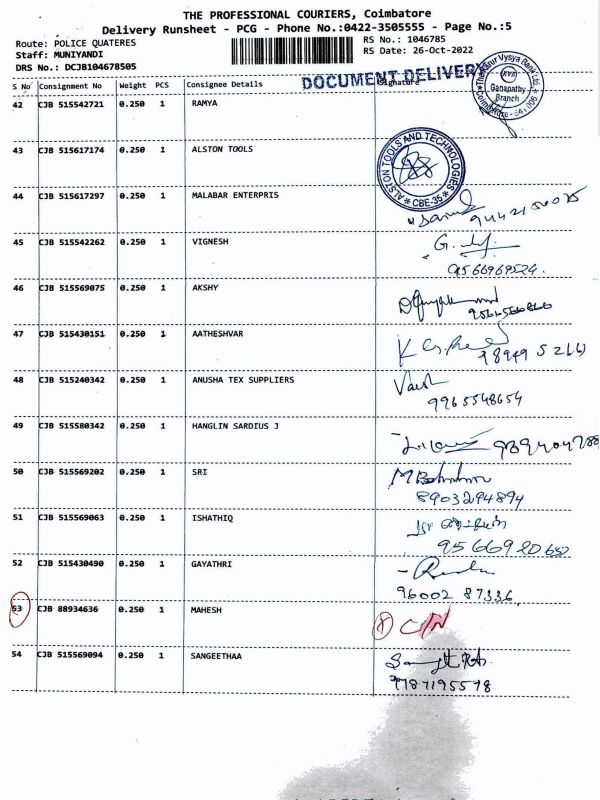 THE PROFESSIONAL COURIERS, Coimbatore
Delivery Runsheet - PCG - Phone No.:0422-3505555 - Page No.:5
Route: POLICE QUATERES
Staff: MUNIYANDI
DRS No.: DCJB104678505
RS No.: 1046785
RS Date: 26-Oct-2022
DOCUMENT DELIVERY
S No Consignment No Weight PCS Consignee Details Signature
Vysya Bank Ltd.
KVB
Ganapathy
Branch
Coimbatore
42 CJB 515542721 0.250 1 RAMYA
43 CJB 515617174 0.250 1 ALSTON TOOLS
ALSTON TOOLS AND TECHNOLOGIES
* CBE-35 *
44 CJB 515617297 0.250 1 MALABAR ENTERPRIS
45 CJB 515542262 0.250 1 VIGNESH
9566969524.
46 CJB 515569075 0.250 1 AKSHY
47 CJB 515430151 0.250 1 AATHESHVAR
48 CJB 515240342 0.250 1 ANUSHA TEX SUPPLIERS
9965548654
49 CJB 515580342 0.250 1 HANGLIN SARDIUS J
50 CJB 515569202 0.250 1 SRI
8903294894
51 CJB 515569063 0.250 1 ISHATHIQ
52 CJB 515430490 0.250 1 GAYATHRI
96002 87336
53 CJB 88934636 0.250 1 MAHESH
C/N
54 CJB 515569094 0.250 1 SANGEETHAA